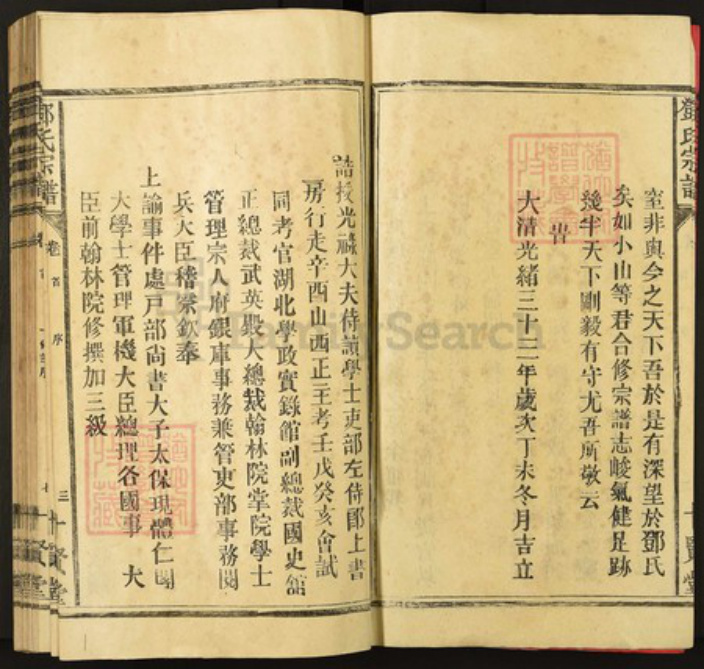 鄧氏宗譜
室非與今之天下吾於是有深望於鄧氏
矣如小山等君合修宗譜志峻氣健足跡
幾半天下剛毅有守尤吾所敬云
旹
大清光緒三十三年歲次丁未冬月吉立
誥授光祿大夫侍讀學士吏部左侍郎上書
房行走辛酉山西正主考壬戊癸亥會試
同考官湖北學政實錄館副總裁國史館
正總裁武英殿大總裁翰林院掌院學士
管理宗人府銀庫事務兼管吏部事務閱
兵大臣稽察欽奉
上諭事件處戶部尚書大子太保現體仁閣
大學士管理軍機大臣總理各國事 大
臣前翰林院修撰加三級
鄧氏宗譜
卷首
序
三
十賢堂
十賢堂
FamilySearch